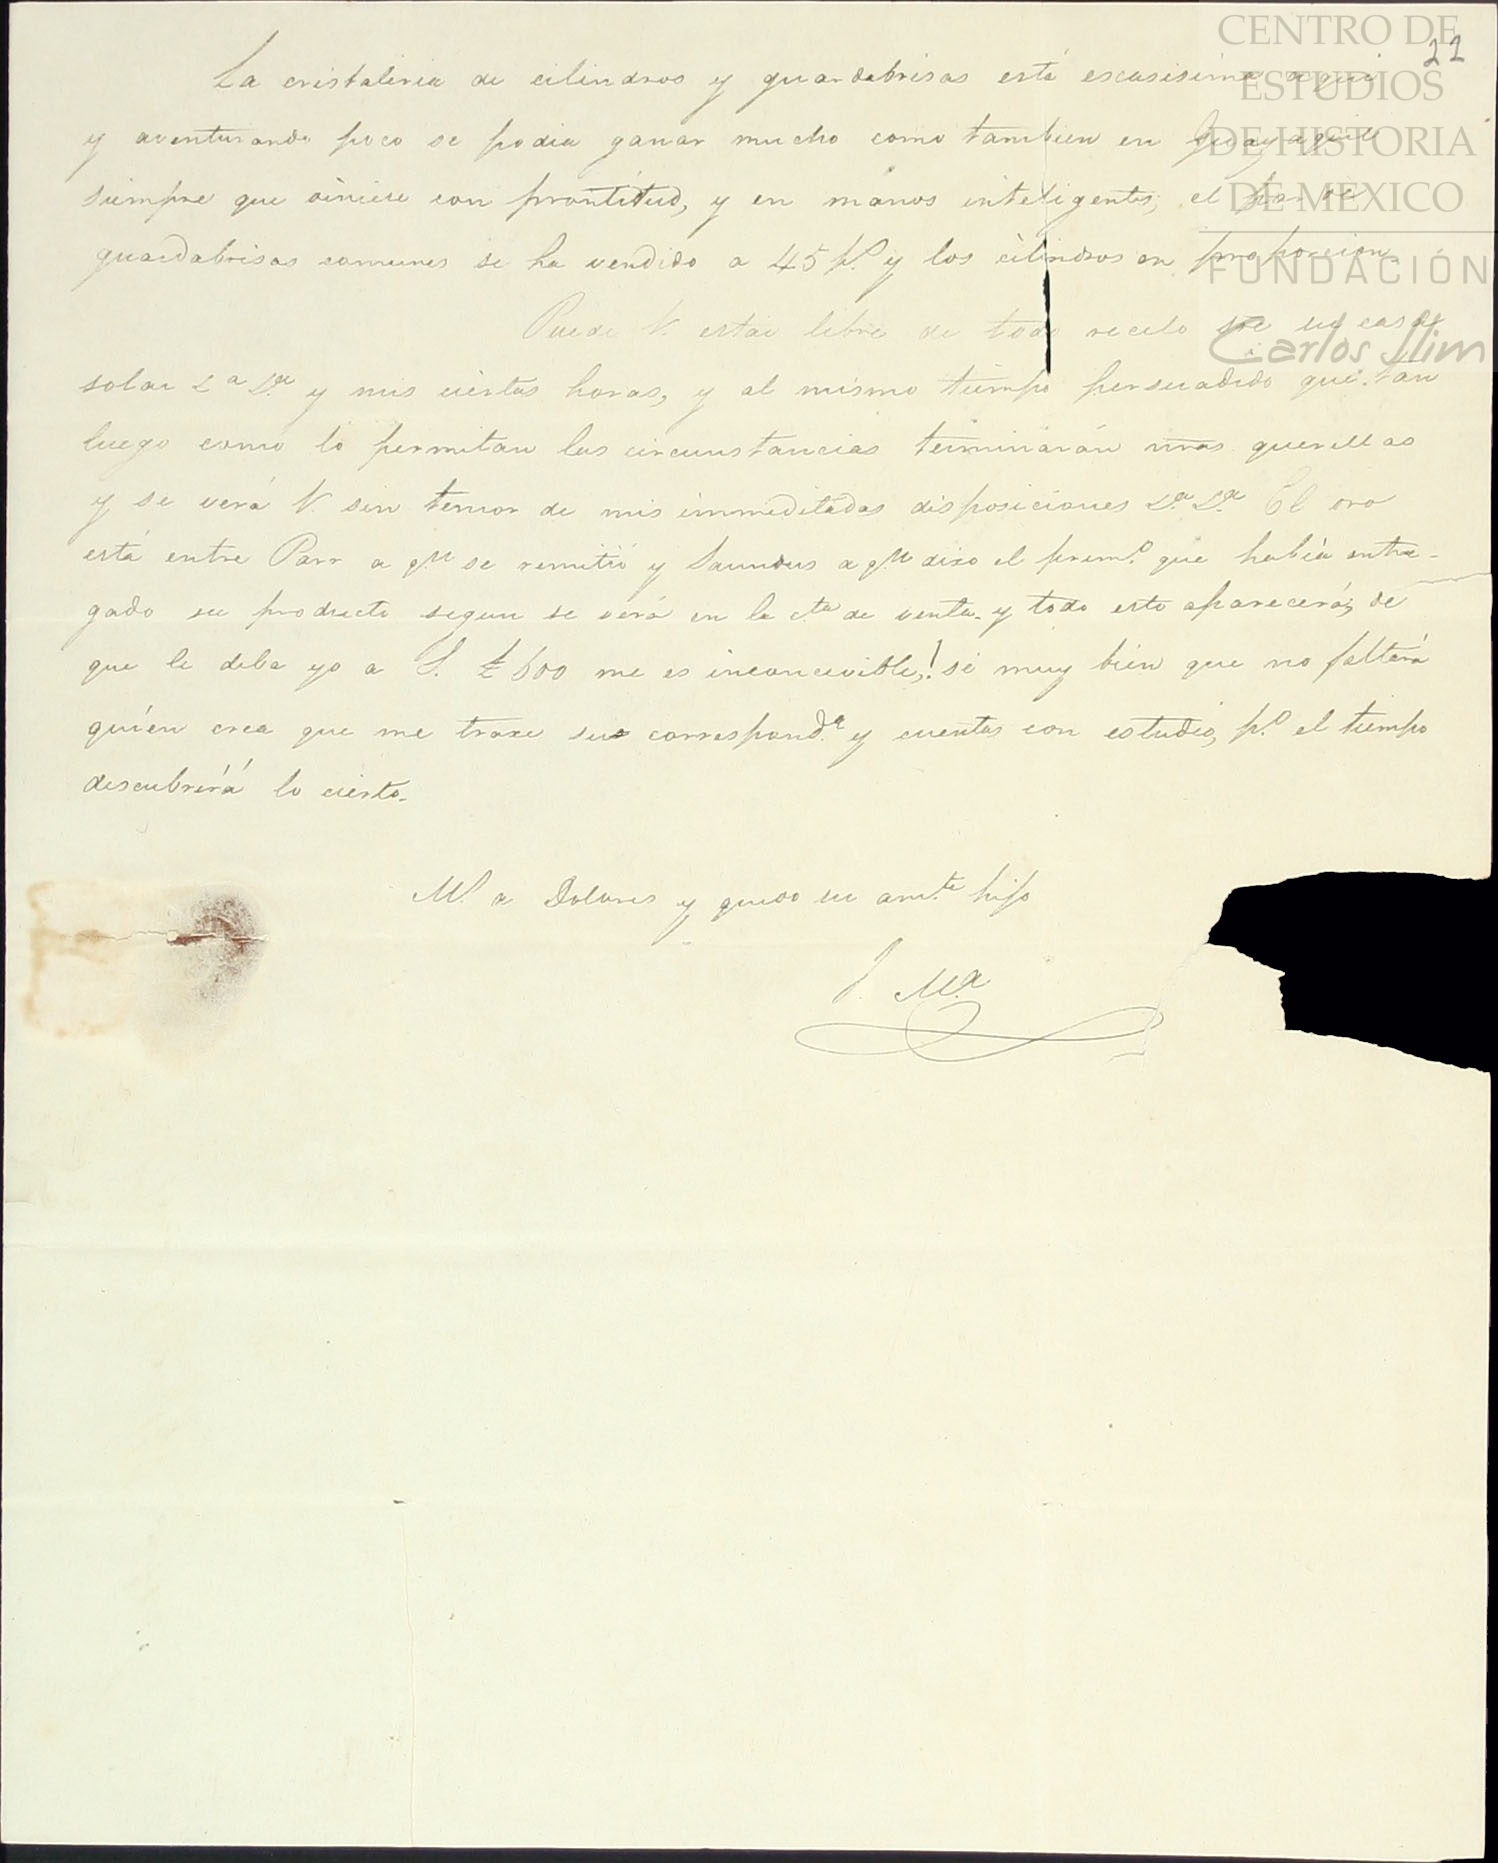 22
CENTRO DE
ESTUDIOS
DE HISTORIA
DE MEXICO
FUNDACIÓN
Carlos Slim
La cristaleria de cilindros y guardabrisas está escasisima aqui
y aventurando poco se podia ganar mucho como tambien en Guayaquil
siempre que viniese con prontitud, y en manos inteligentes, el par de
guardabrisas comunes se ha vendido a 45 p.s y los cilindros en proporcion.
Puede V. estar libre de todo recelo sre su casa
solar La La y mis ciertas horas, y al mismo tiempo persuadido que tan
luego como lo permitan las circunstancias terminarán nras querellas
y se verá V. sin temor de mis immeditadas disposiciones La La El oro
está entre Parr a qn se remitió y Saunders a qn dixo el prim.o que habia entre-
gado su producto segun se verá en la cta de venta y todo esto aparecerá, de
que le deba yo a S. £ 600 me es inconcevible,! sé muy bien que no faltará
quien crea que me traxe sus correspond.a y cuentas con estudio, p.o el tiempo
descubrirá lo cierto.
M.s a Dolores y quedo su am.te hijo
J. M.a